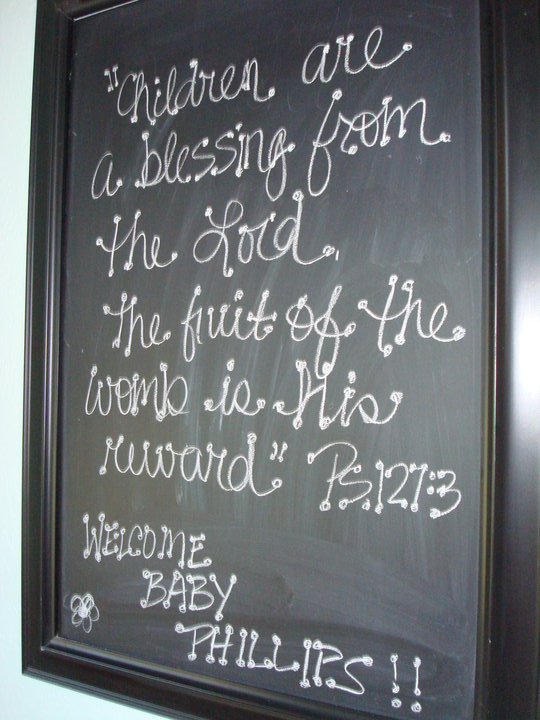 "Children are
a blessing from
the Lord,
the fruit of the
womb is His
reward" Ps.127:3
WELCOME
BABY
PHILLIPS!!